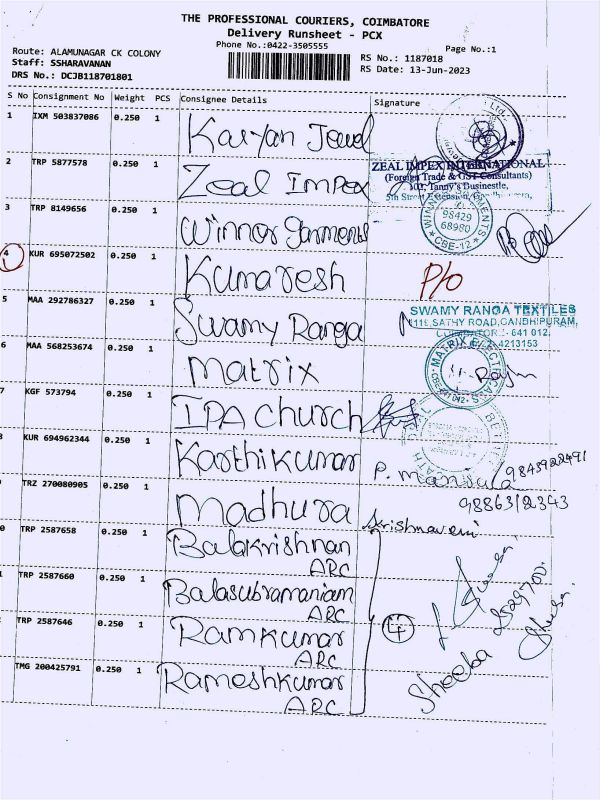 THE PROFESSIONAL COURIERS, COIMBATORE
Delivery Runsheet - PCX
Phone No.:0422-3505555
Page No.:1
Route: ALAMUNAGAR CK COLONY
Staff: SSHARAVANAN
DRS No.: DCJB118701801
RS No.: 1187018
RS Date: 13-Jun-2023
S No Consignment No Weight PCS Consignee Details Signature
1 IXM 503837086 0.250 1 Kalyan Jewel
2 TRP 5877578 0.250 1 Zeal Impex
ZEAL IMPEX INTERNATIONAL
(Foreign Trade & GST Consultants)
102, Tanny's Businestle,
5th Street Extension, Gandhipuram,
3 TRP 8149656 0.250 1 Winner garments
98429
68980
CBE-12
4 KUR 695072502 0.250 1 Kumaresh P/o
5 MAA 292786327 0.250 1 Swamy Ranga
SWAMY RANGA TEXTILES
1116, SATHY ROAD, GANDHIPURAM,
641 012
4213153
6 MAA 568253674 0.250 1 Matrix
MATRIX ELECTRICALS
7 KGF 573794 0.250 1 IPA Church
8 KUR 694962344 0.250 1 Karthikumar P. Manjula 9843922491
TRZ 270080905 0.250 1 Madhura 9886312343
Krishnaveni
0 TRP 2587658 0.250 1 Balakrishnan
ARC
TRP 2587660 0.250 1 Balasubramaniam
ARC
TRP 2587646 0.250 1 Ramkumar
ARC
4
Sheeba
TMG 200425791 0.250 1 Rameshkumar
ARC